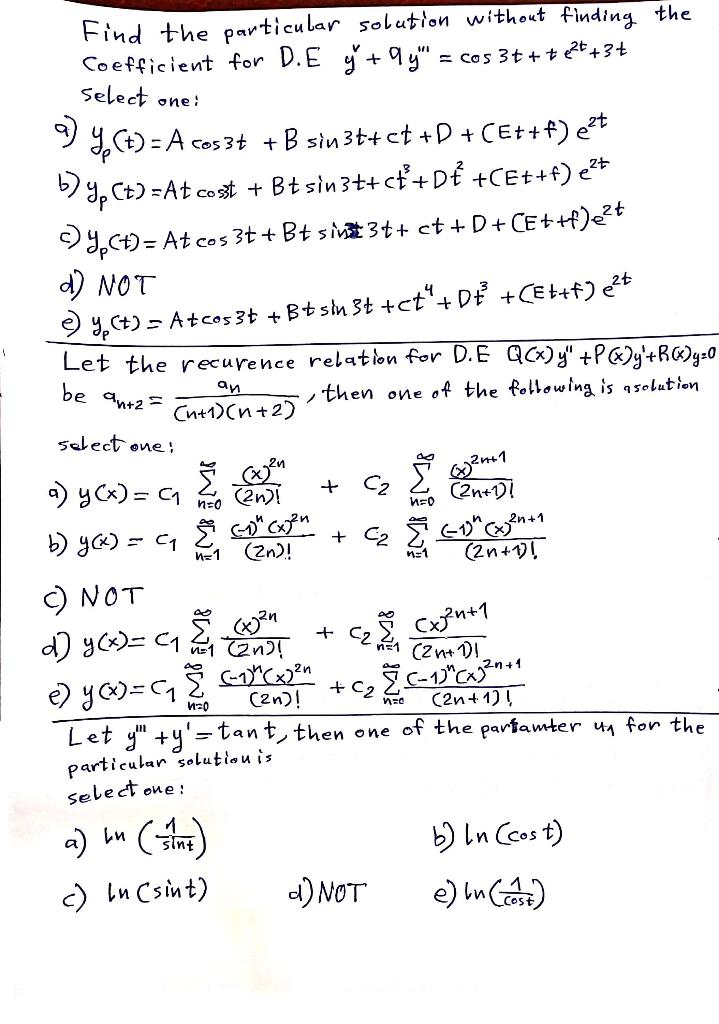 Find the particular solution without finding the
Coefficient for D.E yⱽ + 9y''' = cos 3t + t e^2t + 3t
Select one:
a) y_p(t) = A cos3t + B sin3t + ct + D + (Et+f) e^2t
b) y_p(t) = At cos3t + Bt sin3t + ct^3 + Dt^2 + (Et+f) e^2t
c) y_p(t) = At cos3t + Bt sin 3t + ct + D + (Et+f) e^2t
d) NOT
e) y_p(t) = At cos3t + Bt sin 3t + ct^4 + Dt^3 + (Et+f) e^2t
Let the recurence relation for D.E Q(x)y" + P(x)y' + R(x)y=0
be a_n+2 = a_n / (n+1)(n+2), then one of the following is a solution
select one:
a) y(x) = c1 ∞ Σ n=0 (x)^2n / (2n)! + c2 ∞ Σ n=0 (x)^2n+1 / (2n+1)!
b) y(x) = c1 ∞ Σ n=1 (-1)^n (x)^2n / (2n)! + c2 ∞ Σ n=1 (-1)^n (x)^2n+1 / (2n+1)!
c) NOT
d) y(x) = c1 ∞ Σ n=1 (x)^2n / (2n)! + c2 ∞ Σ n=1 (x)^2n+1 / (2n+1)!
e) y(x) = c1 ∞ Σ n=0 (-1)^n (x)^2n / (2n)! + c2 ∞ Σ n=0 (-1)^n (x)^2n+1 / (2n+1)!
Let y''' + y' = tan t, then one of the partamter u1 for the
particular solution is
select one:
a) ln (1/sint) b) ln (cos t)
c) ln (sint) d) NOT e) ln (1/cost)